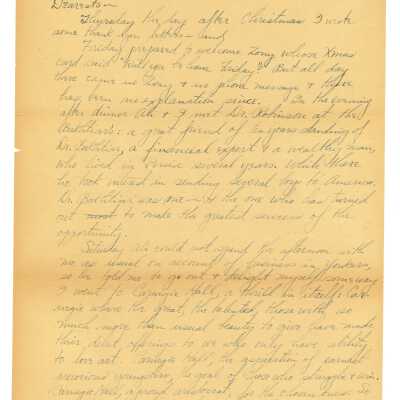 Dearests—
Thursday the day after Christmas I wrote
some thank you letters — and
Friday prepared to welcome Tony whose Xmas
card said "Will you be home Friday?" But all day
there came no Tony & no phone message & there
has been no explanation since. In the evening
after dinner Ali & I met Dr. Robinson at the
a great friend of years standing of
Dr. a financial expert & a wealthy man,
who lived in several years. While there
he took interest in sending several boys to America,
Dr. was one — & the one who has turned
out most to make the greatest success of the
opportunity.
Saturday Ali could not spend the afternoon with
me as usual on account of business in Yonkers,
so he told me to go out & delight myself someway
I went to Carnegie Hall, a thrill in itself. Car-
negie where the great, the talented, those with so
much more than usual beauty to give have made
their debut offerings to we who only have ability
to love art. Carnegie Hall, the aspiration of earnest
youngsters, the goal of those who struggle & win.
Carnegie Hall, a proud aristocrat, for the chosen ones. So